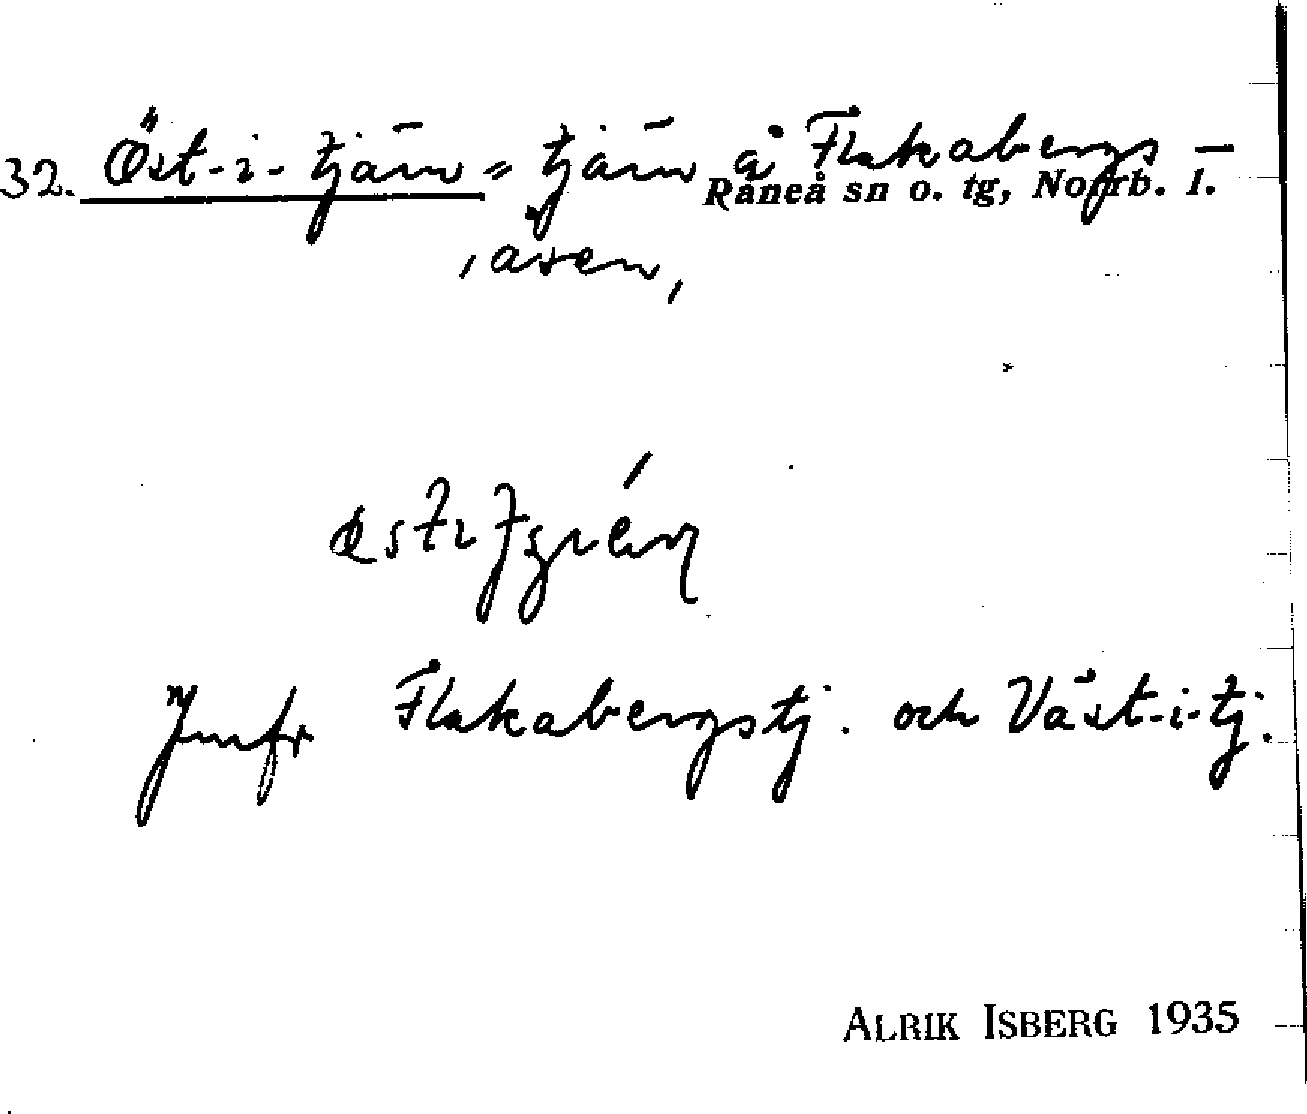 32. Öst-i-tjärn = tjärn å Flakabergs-
Råneå sn o. tg, Norrb. l.
åsen,
Jmfr Flakabergstj. och Väst-i-tj.
ALRIK ISBERG 1935